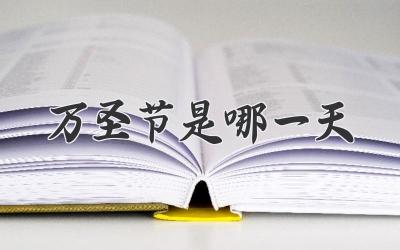 万圣节是哪一天